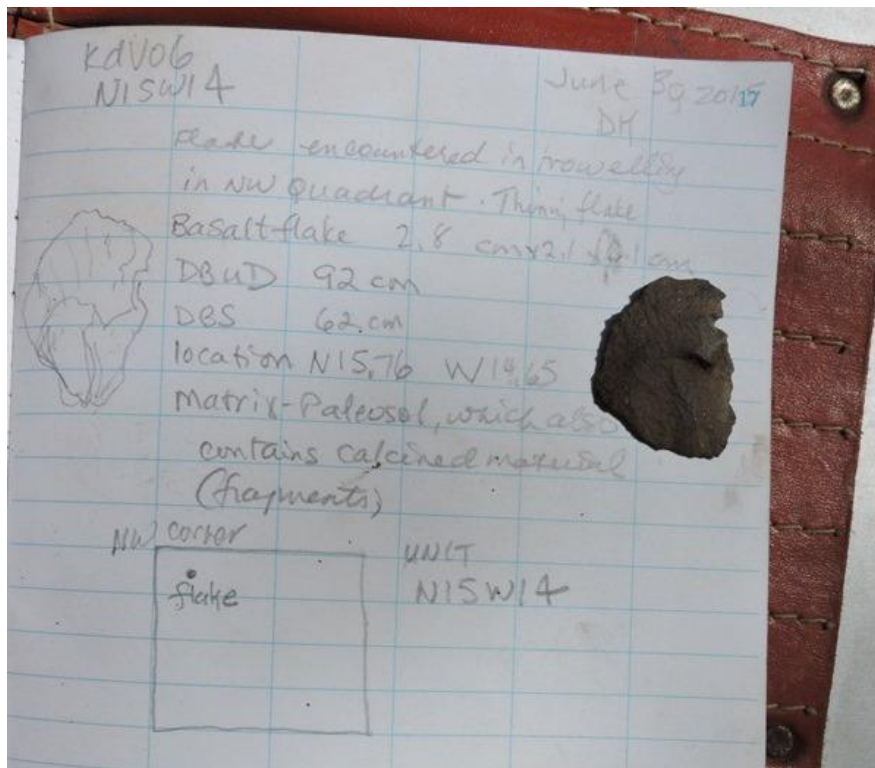 KdVo6
N15W14
June 30 2015 17
DH
Flake encountered in trowelling
in NW Quadrant. Thinning flake
Basalt flake 2.8 cm x 2.1 x .1 cm
DBUD 92 cm
DBS 62.cm
location N15.76 W14.65
Matrix-Paleosol, which also
contains calcined material
(fragments)
NW corner
UNIT
flake
N15W14